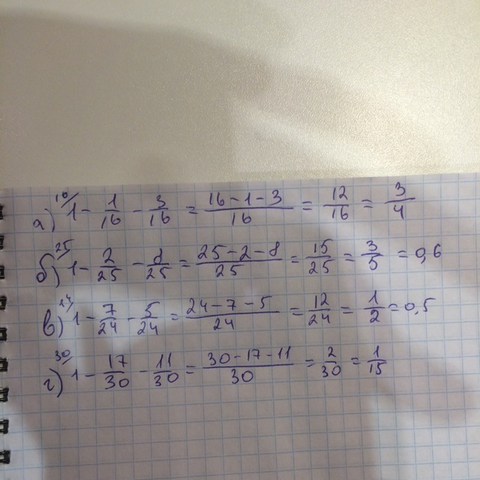 а) 1 16/ - 1/16 - 3/16 = (16-1-3)/16 = 12/16 = 3/4
б) 1 25/ - 2/25 - 8/25 = (25-2-8)/25 = 15/25 = 3/5 = 0,6
в) 1 24/ - 7/24 - 5/24 = (24-7-5)/24 = 12/24 = 1/2 = 0,5
г) 1 30/ - 17/30 - 11/30 = (30-17-11)/30 = 2/30 = 1/15